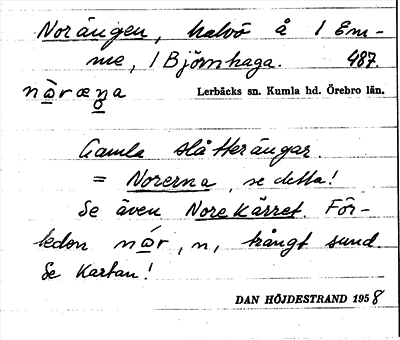 Norängen, halvö å 1 Em-
me, 1 Björnhaga. 487.
nòræŋa Lerbäcks sn. Kumla hd. Örebro län.
Gamla slåtterängar.
= Norerna, se detta!
Se även Nore Kärret. För-
leden nór, n, trångt sund.
Se Kartan!
DAN HÖJDESTRAND 1958